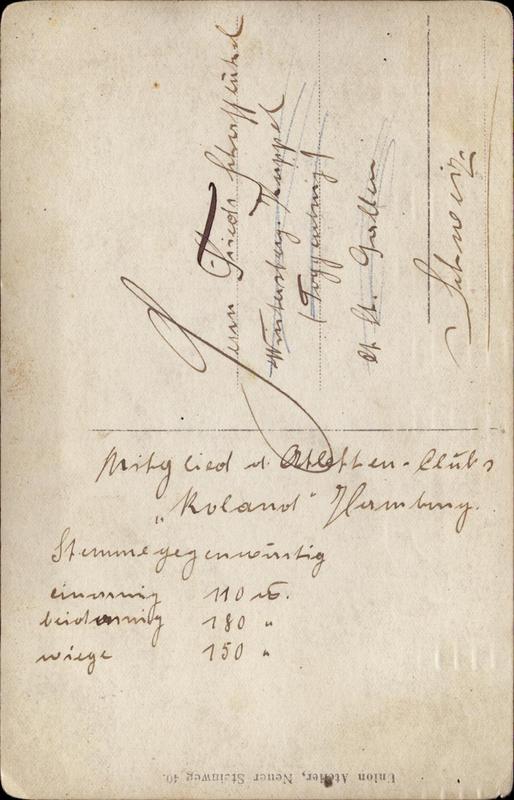 Herrn Friedr.
(Toggenburg)
Ct. St. Gallen
Schweiz
Mitglied d. Athletten-Clubs
„Roland" Hamburg.
Stemme gegenwärtig
einarmig 110 ℔.
beidarmig 180 "
wiege 150 "
Union Atelier, Neuer Steinweg 40.